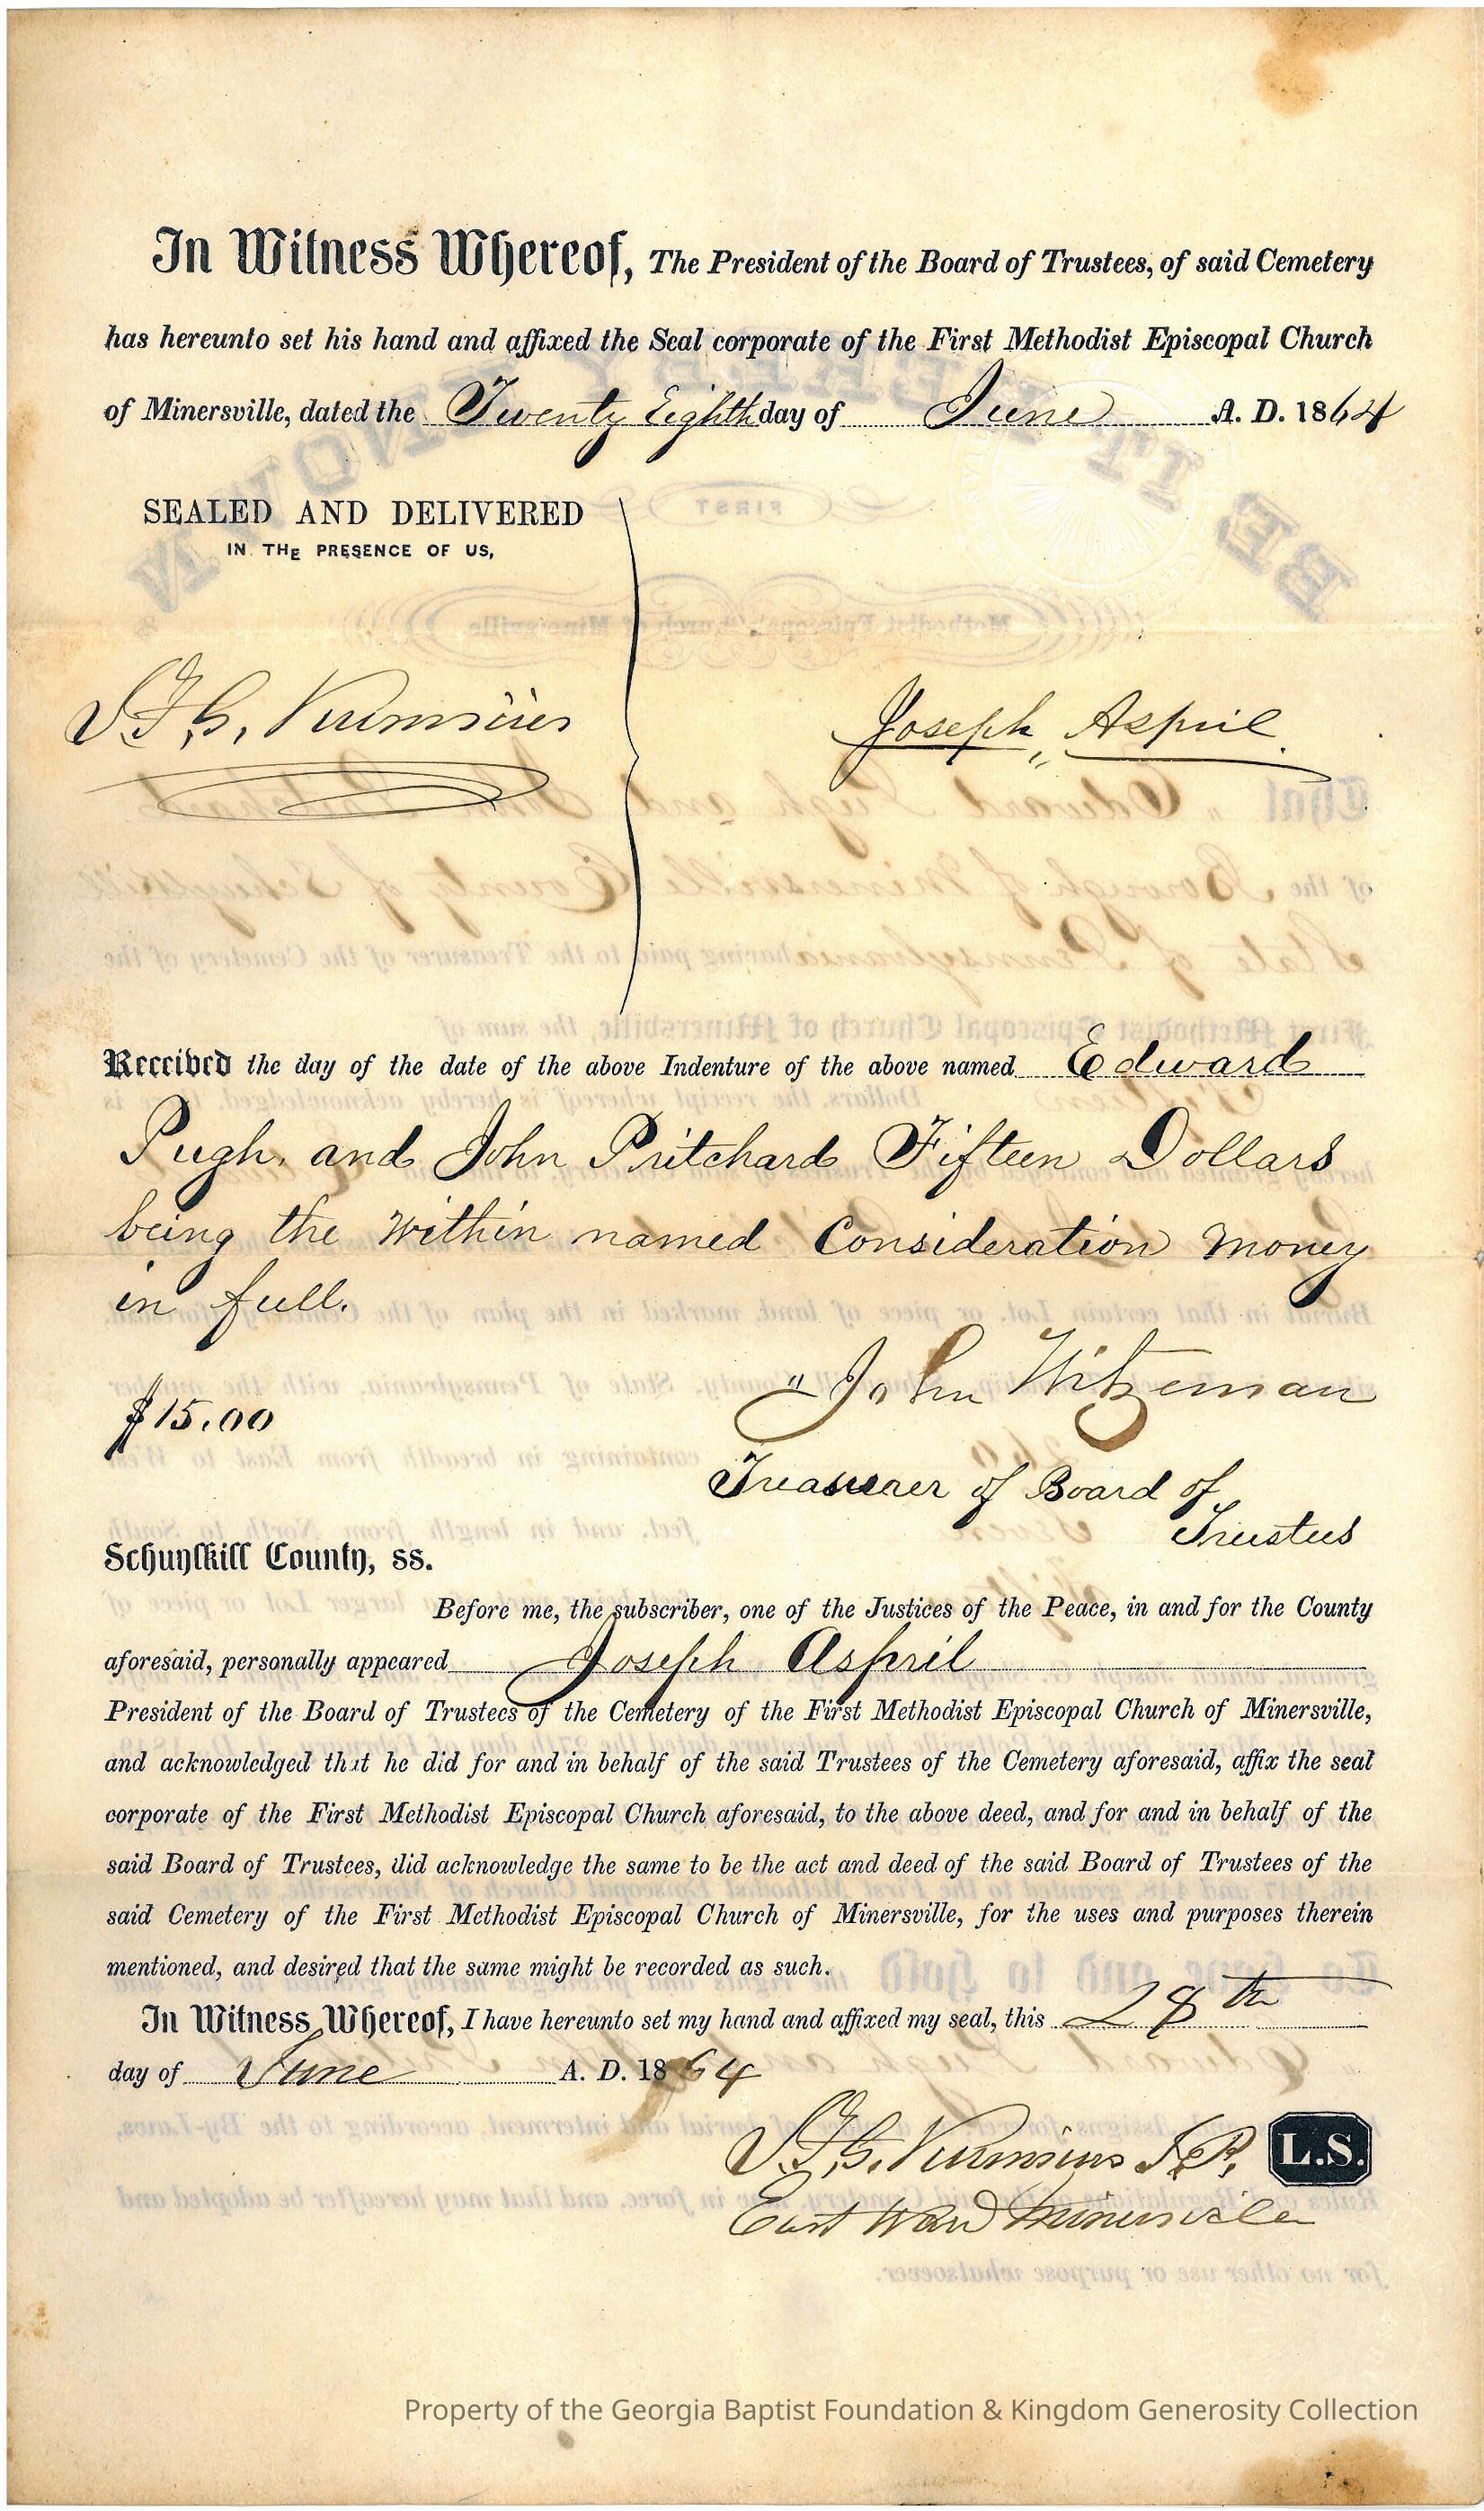 In Witness Whereof, The President of the Board of Trustees, of said Cemetery
has hereunto set his hand and affixed the Seal corporate of the First Methodist Episcopal Church
of Minersville, dated the Twenty Eighth day of June A. D. 1864
SEALED AND DELIVERED
IN THE PRESENCE OF US,
Joseph Aspril
Received the day of the date of the above Indenture of the above named Edward
Pugh, and John Pritchard Fifteen Dollars
being the within named Consideration money
in full.
"John Witzeman
$15.00
Treasurer of Board of
Trustees
Schuylkill County, ss.
Before me, the subscriber, one of the Justices of the Peace, in and for the County
aforesaid, personally appeared Joseph Aspril
President of the Board of Trustees of the Cemetery of the First Methodist Episcopal Church of Minersville,
and acknowledged that he did for and in behalf of the said Trustees of the Cemetery aforesaid, affix the seal
corporate of the First Methodist Episcopal Church aforesaid, to the above deed, and for and in behalf of the
said Board of Trustees, did acknowledge the same to be the act and deed of the said Board of Trustees of the
said Cemetery of the First Methodist Episcopal Church of Minersville, for the uses and purposes therein
mentioned, and desired that the same might be recorded as such.
In Witness Whereof, I have hereunto set my hand and affixed my seal, this 28th
day of June A. D. 1864
J.P. L.S.
East Ward Minersville
Property of the Georgia Baptist Foundation & Kingdom Generosity Collection